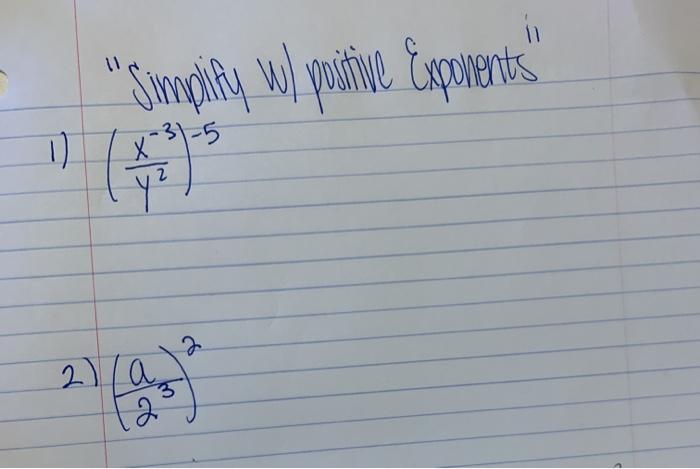 "Simplify w/ positive Exponents"
1) (x⁻³/y²)⁻⁵
2) (a/2³)²